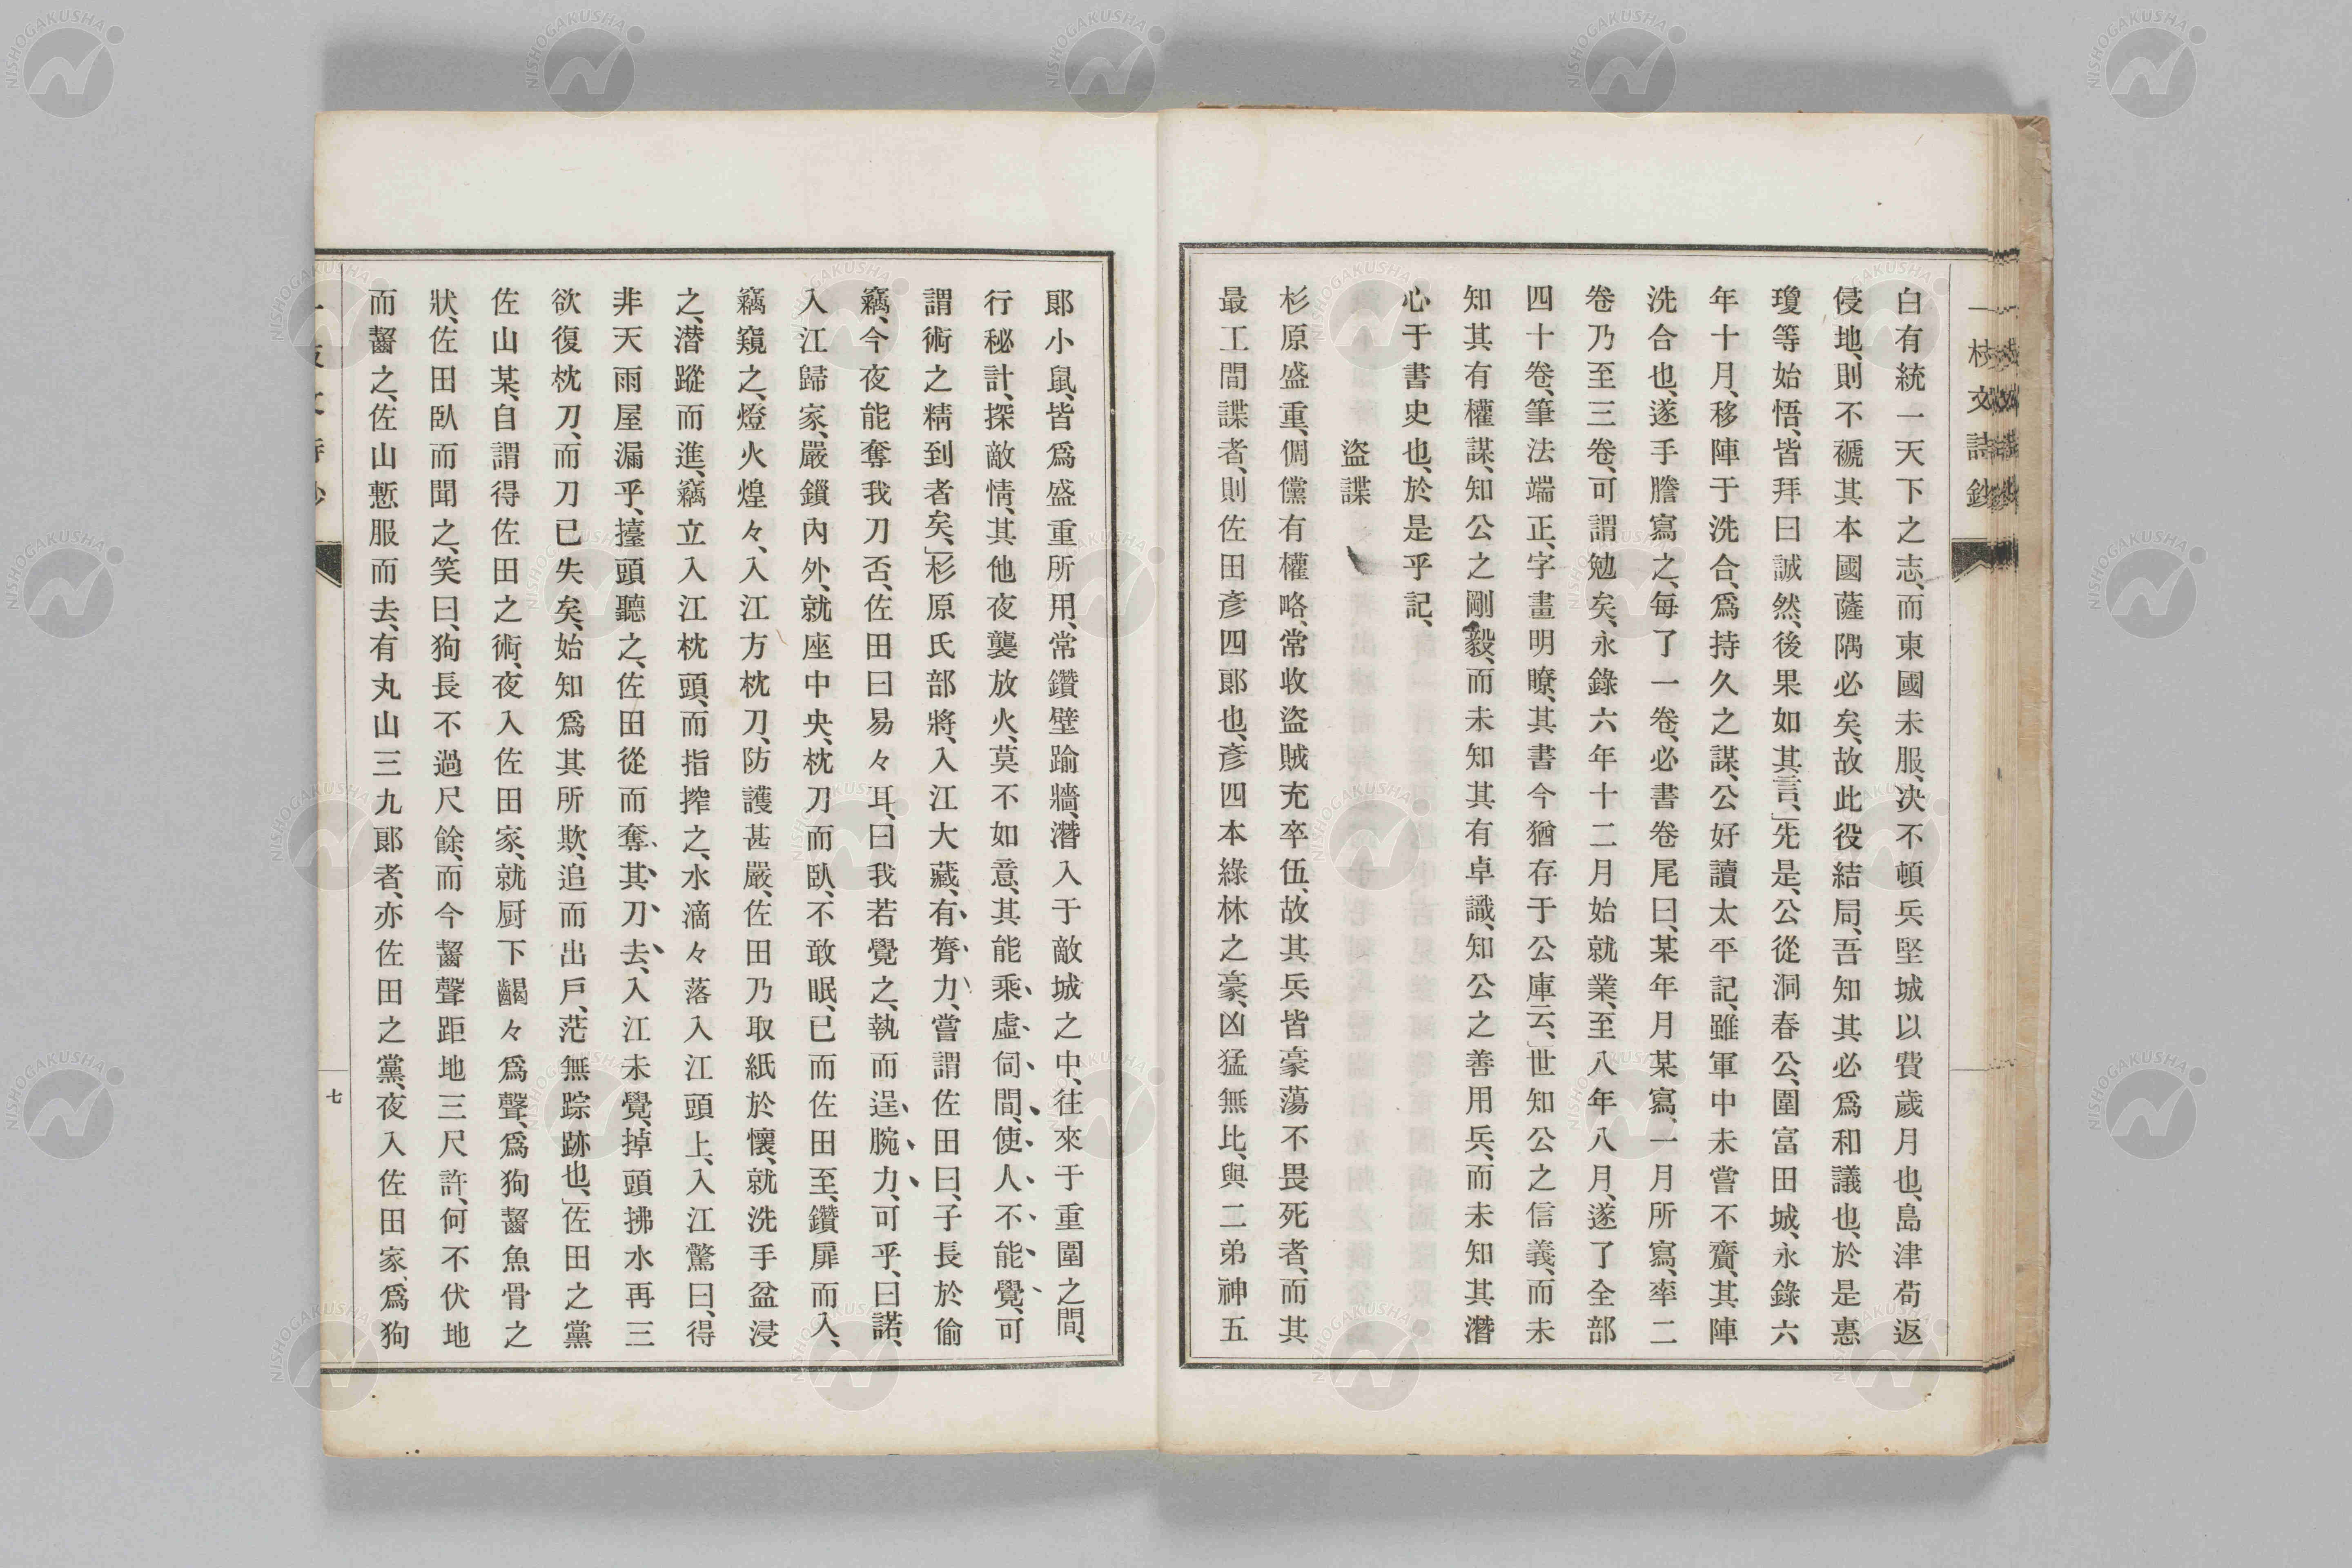 一枝文詩鈔
白有統一天下之志、而東國未服、决不頓兵堅城以費歲月也、島津苟返
侵地、則不褫其本國薩隅必矣、故此役結局、吾知其必爲和議也、於是惠
瓊等始悟、皆拜曰誠然、後果如其言、」先是、公從洞春公、圍富田城、永錄六
年十月、移陣于洗合、爲持久之謀、公好讀太平記、雖軍中未嘗不齎、其陣
洗合也、遂手謄寫之、每了一卷、必書卷尾曰、某年月某寫、一月所寫、率二
卷乃至三卷、可謂勉矣、永錄六年十二月始就業、至八年八月、遂了全部
四十卷、筆法端正、字畫明瞭、其書今猶存于公庫云、」世知公之信義、而未
知其有權謀、知公之剛毅、而未知其有卓識、知公之善用兵、而未知其潛
心于書史也、於是乎記、
盜諜
杉原盛重、倜儻有權略、常收盜賊充卒伍、故其兵皆豪蕩不畏死者、而其
最工間諜者、則佐田彥四郞也、彥四本綠林之豪、凶猛無比、與二弟神五
郞小鼠、皆爲盛重所用、常鑽壁踰牆、潛入于敵城之中、往來于重圍之間、
行秘計、探敵情、其他夜襲放火、莫不如意、其能乘虛伺間、使人不能覺、可
謂術之精到者矣、」杉原氏部將、入江大藏、有膂力、嘗謂佐田曰、子長於偷
竊、今夜能奪我刀否、佐田曰易々耳、曰我若覺之、執而逞腕力、可乎、曰諾、
入江歸家、嚴鎖內外、就座中央、枕刀而臥、不敢眠、已而佐田至、鑽扉而入、
竊窺之、燈火煌々、入江方枕刀、防護甚嚴、佐田乃取紙於懷、就洗手盆浸
之、潜蹤而進、竊立入江枕頭、而指搾之、水滴々落入江頭上、入江驚曰、得
非天雨屋漏乎、擡頭聽之、佐田從而奪其刀去、入江未覺、掉頭拂水再三
欲復枕刀、而刀已失矣、始知爲其所欺、追而出戶、茫無踪跡也、」佐田之黨
佐山某、自謂得佐田之術、夜入佐田家、就厨下齃々爲聲、爲狗齧魚骨之
狀、佐田臥而聞之、笑曰、狗長不過尺餘、而今齧聲距地三尺許、何不伏地
而齧之、佐山慙服而去、有丸山三九郞者、亦佐田之黨、夜入佐田家、爲狗
七